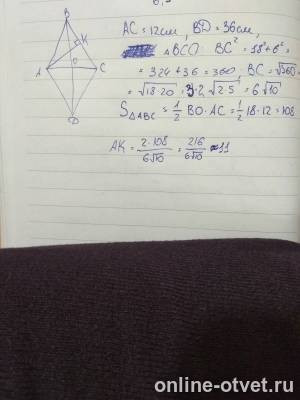 B
K
A
O
C
D
AC = 12см, BD = 36см,
△BCO BC² = 18² + 6² =
= 324 + 36 = 360, BC = √360 =
= √18·20 = 3·2√2·5 = 6√10
S△ABC = 1/2 BO·AC = 1/2 18·12 = 108
AK = 2·108/6√10 = 216/6√10 ≈ 11
online-otvet.ru